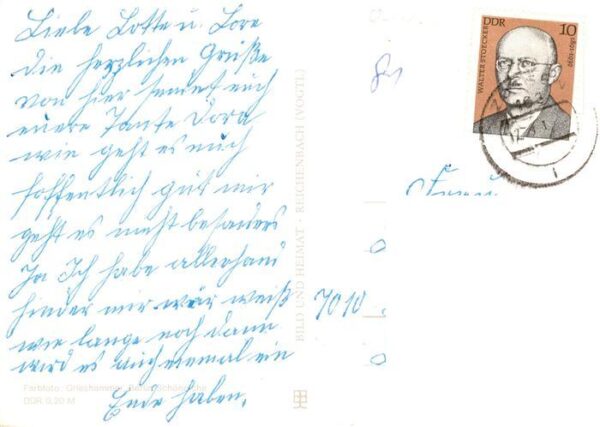 Liebe Lotte u. Lore
die herzlichen Grüße
von hier sendet euch
euere Tante Dora
wie geht es euch
hoffentlich gut mir
geht es nicht besonders
Ja Ich habe allerhand
hinder mir wär weiß
wie lange noch dann
wird es auch einmal ein
Ende haben.
Farbfoto: Grieshammer,
DDR 0,20 M
BILD UND HEIMAT · REICHENBACH (VOGTL.)
DDR 10
WALTER STOECKER
1891-1939
7010